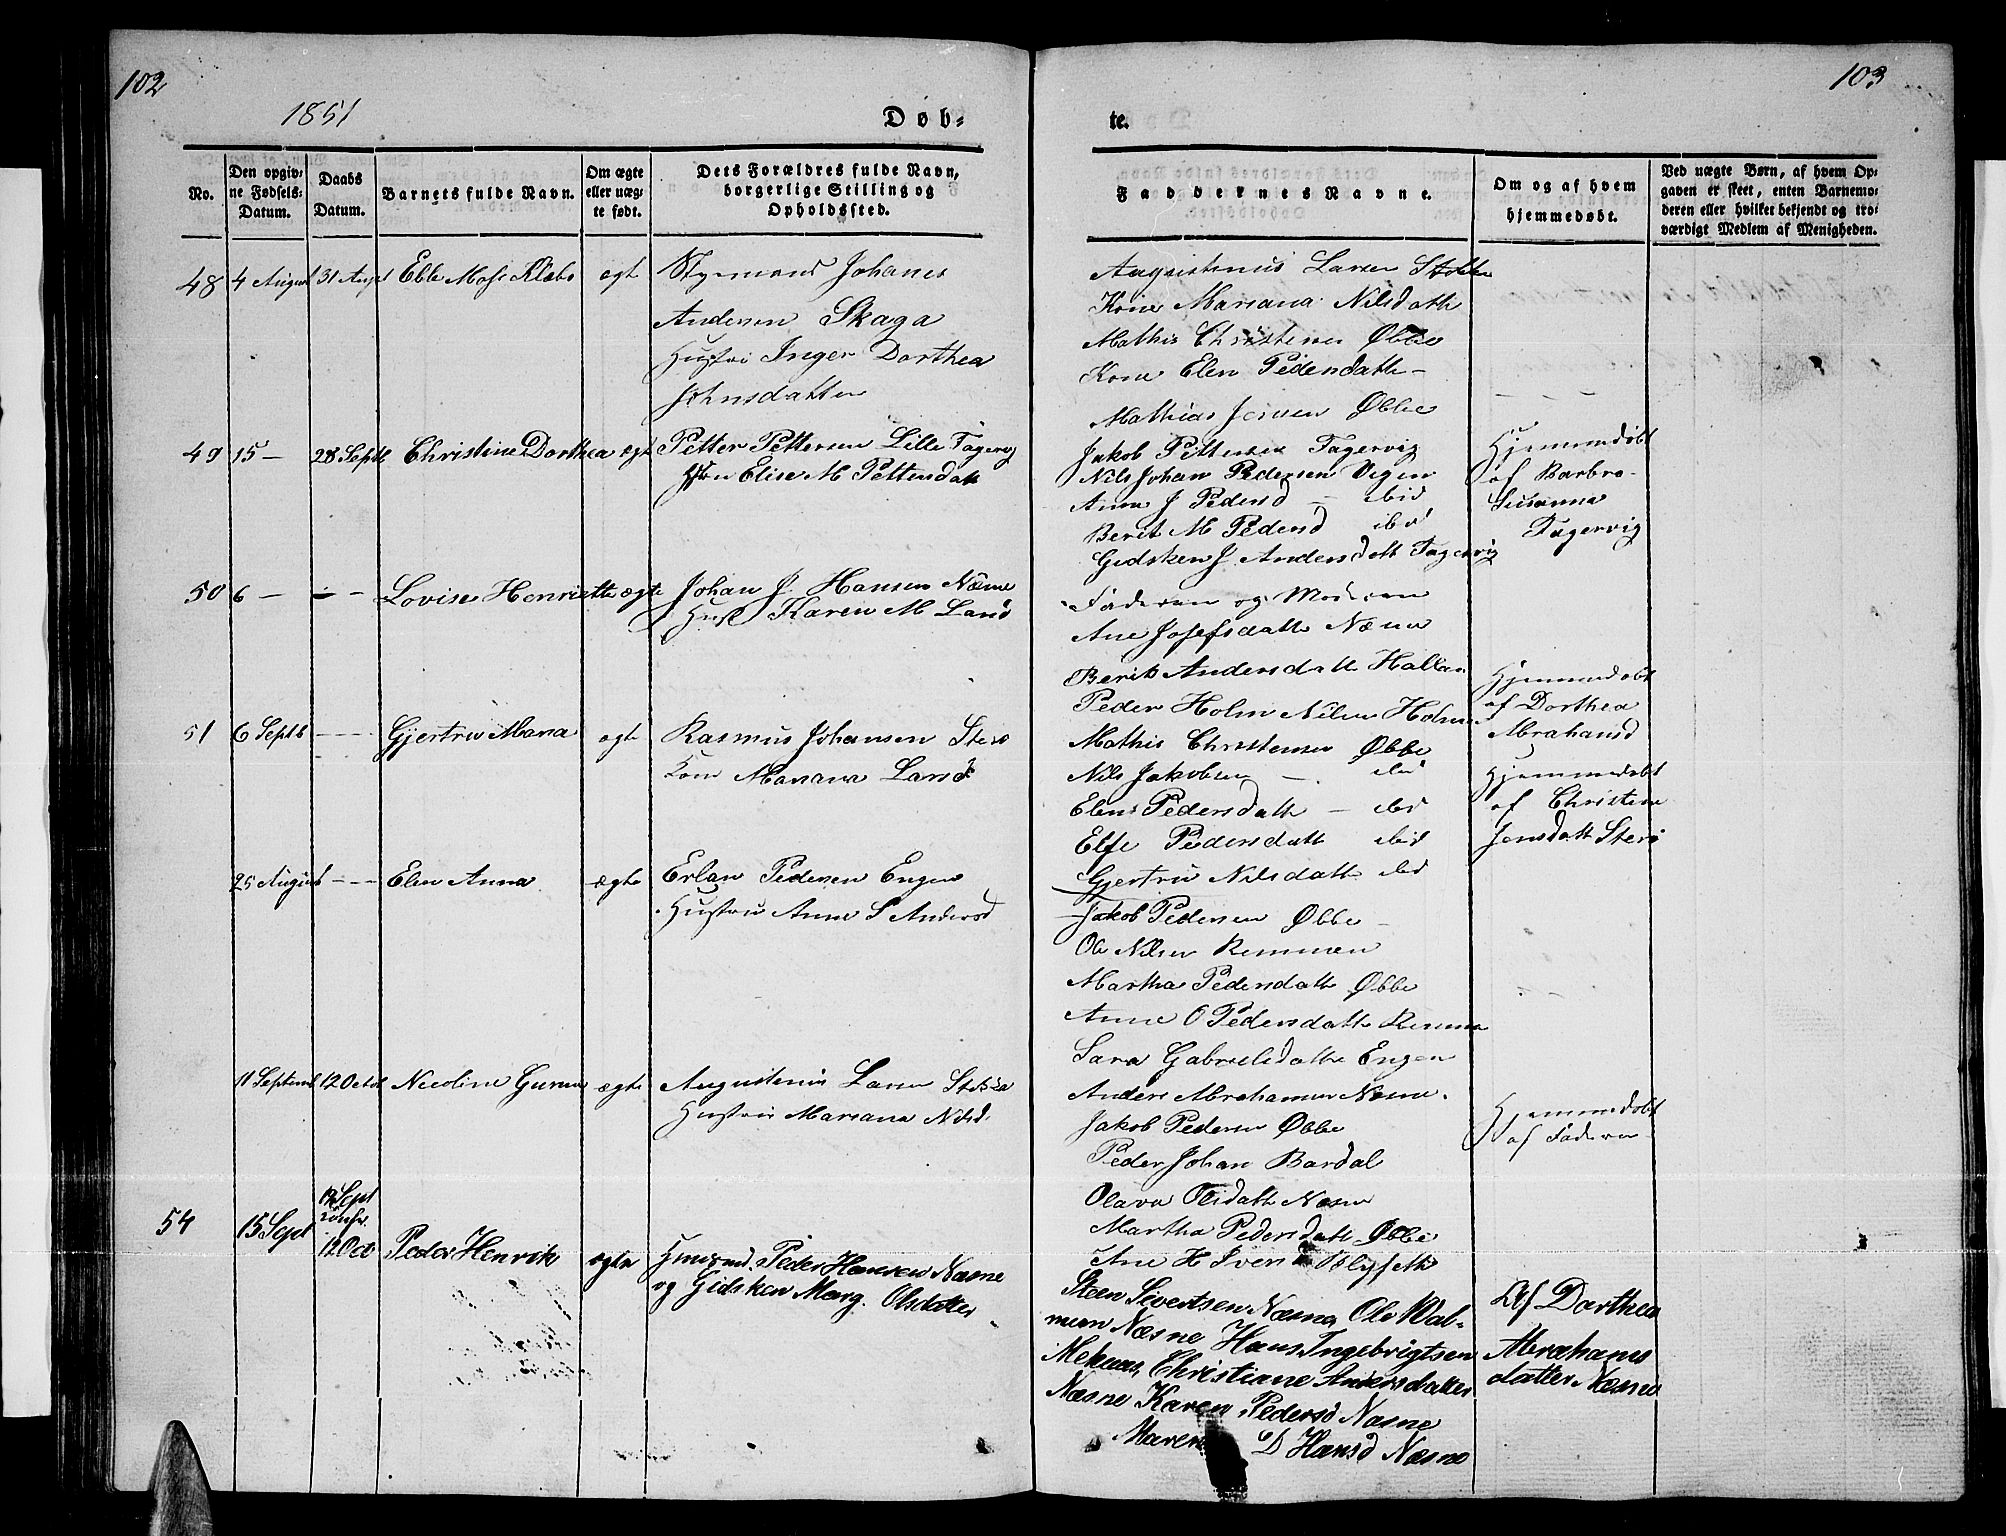 102
1851
Døb-
No.
Den opgiv-
ne Fødsels-
Datum.
Daabs
Datum.
Barnets fulde Navn.
Om ægte
eller uæg-
te født.
Dets Forældres fulde Navn,
borgerlige Stilling og
Opholdssted.
48 4 August 31 Augst Ebbe Mose Klæbo ægt
Johanes
Andersen Skaga
Hustru Inger Dorthea
Johnsdatter
49 15 – 28 Septb Christine Dorthea ægt Petter Pettersen Lille Fagervig
Elise M Pettersdatt
50 6 – – – Lovise Henriette ægte Johan J. Hansen Næsne
Hust Karen M Larsd
51 6 Septb – – Gjertru Maria ægte Rasmus Johansen Sterø
Kone Mariana Larsd
25 August – – Elen Anna ægte Erlan Pedersen Engen
Hustru Anne S Andersd
11 Septemb 12 Octob Nicoline Gurine ægte Augustinus Larsen
Hustru Mariana Nilsd.
54 15 Sept 12 Oct Peder Henrik ægte Huusmd. Peder Hansen Næsne
og Gidsken Marg. Olsdatter
103
te.
Faddernes Navne.
Om og af hvem
hjemmedøbt.
Ved uægte Børn, af hvem Op-
gaven er skeet, enten Barnemo-
deren eller hvilket bekjendt og tro-
værdigt Medlem af Menigheden.
Augustinus Larsen
Kone Mariana Nilsdatt
Mathis Christensen Øbbe
Kone Elen Pedersdatt –
Mathias Jensen Øbbe
Jakob Pettersen Fagervig
Nils Johan Pedersen Vegen
Anne J Pedersd – ibid
Berit M Pedersd ibid
Gidsken J. Andersdatt Fagervig
Hjemmedøbt
af Barbro
Susanna
Fagervig
Faderen og Moderen
Ane Josefsdatt Næsne
Berit Andersdatt Halland
Peder Holm Nilsen Holm
Hjemmedøbt
af Dorthea
Abrahamsd
Mathis Christensen Øbbe
Nils Jakobsen – ibid
Elen Pedersdatt – ibid
Else Pedersdatt ibid
Gjertru Nilsdatt ibid
Hjemmedøbt
af Christine
Jensdatt Sterø
Jakob Pedersen Øbbe –
Ole Nilsen Remmen
Martha Pedersdatt Øbbe
Anne O Pedersdatt Remmen
Sara Gabrielsdatt Engen
Anders Abrahamsen Næsne
Jakob Pedersen Øbbe
Peder Johan Bardal
Olava Olsdatt Næsne
Martha Pedersdatt Øbbe
Ane H
Hjemmedøbt
af Faderen
Steen Sivertsen Næsne, Ole Wal-
mum Næsne Hans Ingebrigtsen
Christiane Andersdatter
Næsne Karen Pedersd Næsne
Maren D Hansd Næsne
Af Dorthea
Abrahams
datter Næsne